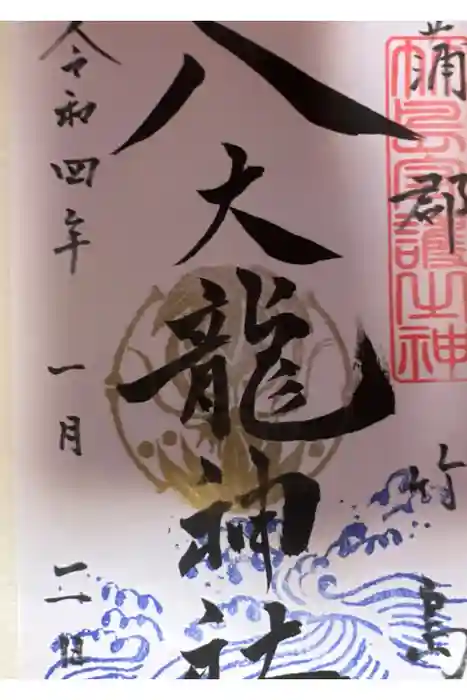 蒲郡 竹島
竹島守護之神
八大龍神社
令和四年 一月 二日